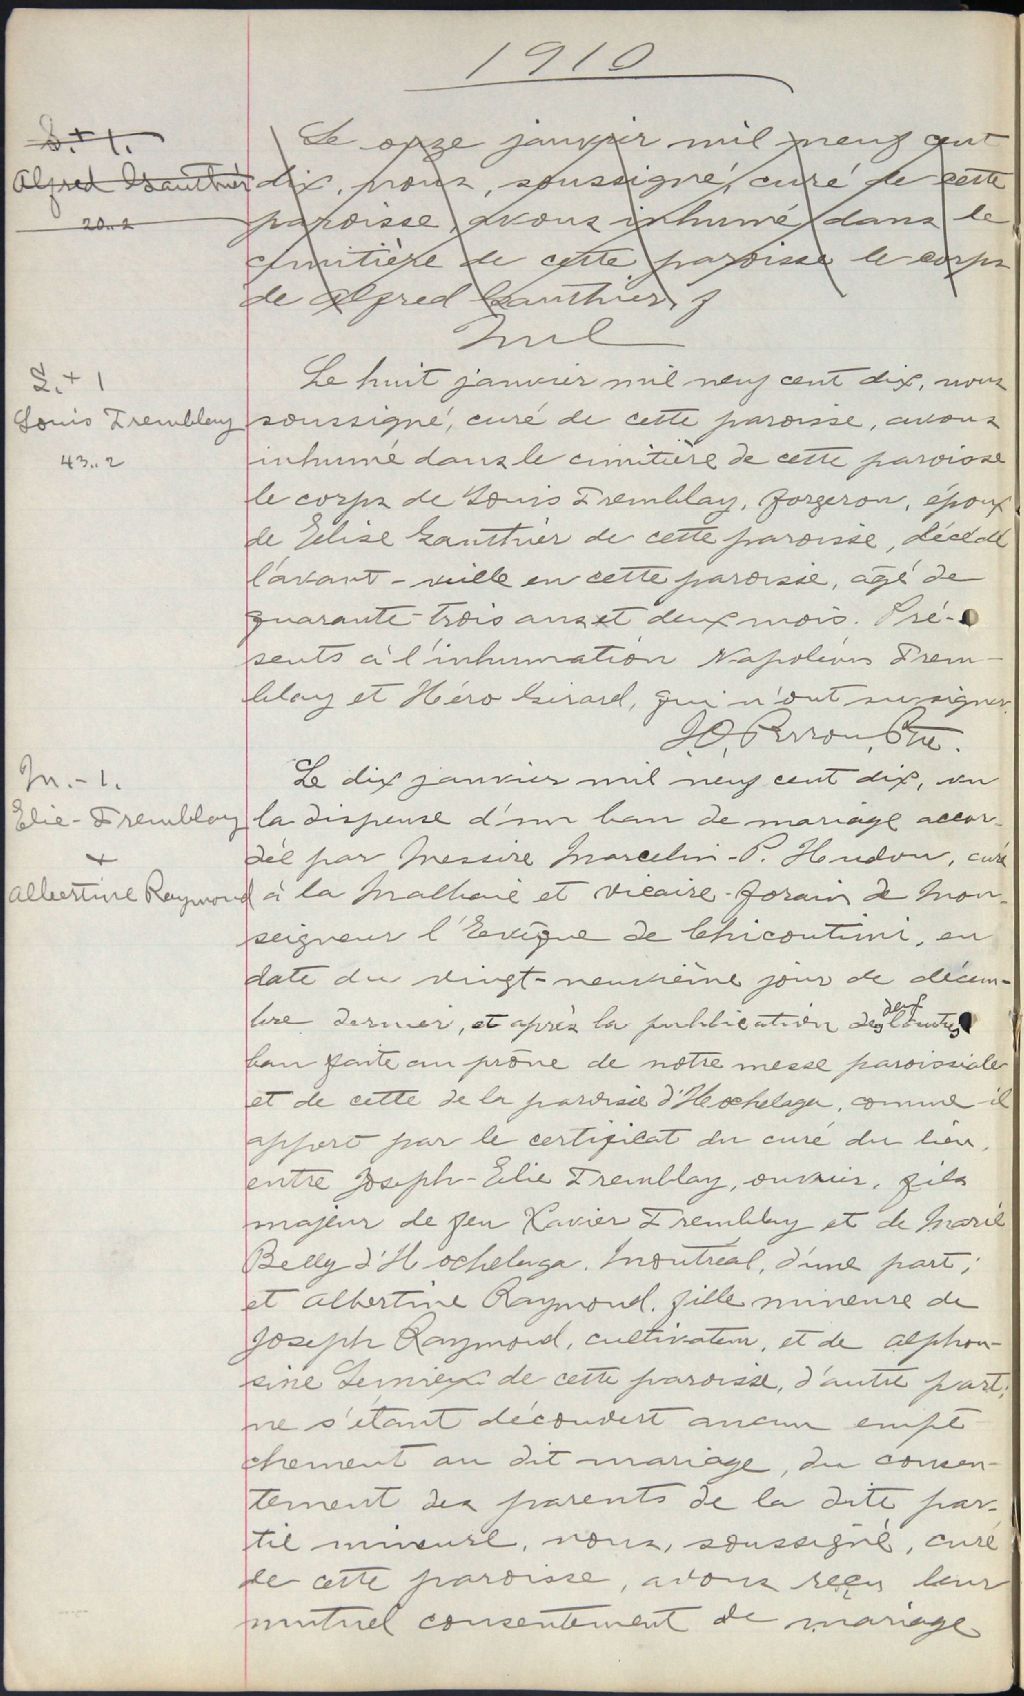 1910
S. + 1.
Alfred Gauthier
20..2
Le onze janvier mil neuf cent
dix, nous, soussigné, curé de cette
paroisse, avons inhumé dans le
cimitière de cette paroisse le corps
de Alfred Gauthier, f
Nul
S. + 1
Louis Tremblay
43..2
Le huit janvier mil neuf cent dix, nous
soussigné, curé de cette paroisse, avons
inhumé dans le cimitière de cette paroisse
le corps de Louis Tremblay, forgeron, époux
de Elise Gauthier de cette paroisse, décédé
l'avant-veille en cette paroisse, agé de
quarante-trois ans et deux mois. Pré-
sents à l'inhumation Napoléon Trem-
blay et Héro Girard, qui n'ont su signer.
J.O. Perron, Ptre.
M.-1.
Elie-Tremblay
+
Albertine Raymond
Le dix janvier mil neuf cent dix, vu
la dispense d'un ban de mariage accor-
dée par Messire Marcelin-P. Hudon, curé
à la Malbaie et vicaire-forain de Mon-
seigneur l'Evêque de Chicoutimi, en
date du vingt-neuvième jour de décem-
bre dernier, et après la publication des deux autres
ban faite au prône de notre messe paroissiale
et de cette de la paroisse d'Hochelaga, comme il
appert par le certificat du curé du lieu,
entre Joseph-Elie Tremblay, ouvrier, fils
majeur de feu Xavier Tremblay et de Marie
Belly d'Hochelaga, Montréal, d'une part;
et Albertine Raymond, fille mineure de
Joseph Raymond, cultivateur, et de Alphon-
sine Lemieux de cette paroisse, d'autre part;
ne s'étant découvert aucun empê
chement au dit mariage, du consen-
tement des parents de la dite par-
tie mineure, nous, soussigné, curé
de cette paroisse, avons reçu leur
mutuel consentement de mariage